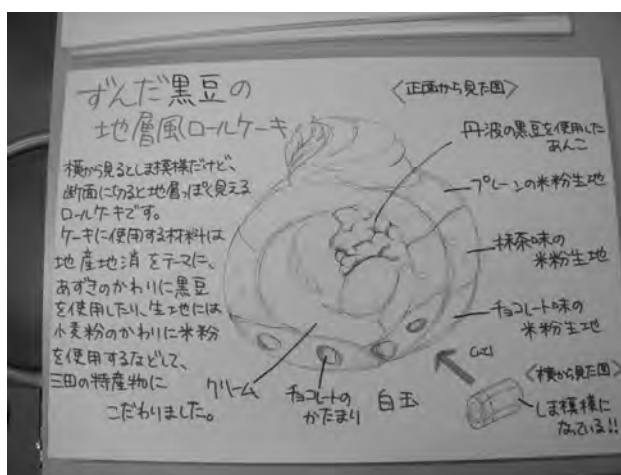 ずんだ黒豆の
地層風ロールケーキ
横から見るとしま模様だけど、
断面に切ると地層っぽく見える
ロールケーキです。
ケーキに使用する材料は
地産地消をテーマに、
あずきのかわりに黒豆
を使用したり、生地には
小麦粉のかわりに米粉
を使用するなどして、
三田の特産物に
こだわりました。
〈正面から見た図〉
丹波の黒豆を使用した
あんこ
プレーンの米粉生地
抹茶味の
米粉生地
チョコレート味の
米粉生地
クリーム
チョコレートの
かたまり
白玉
〈横から見た図〉
しま模様に
なっている!!